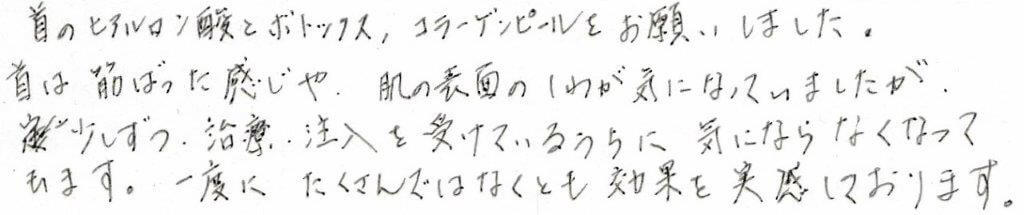 首のヒアルロン酸とボトックス, コラーゲンピールをお願いしました。
首は筋ばった感じや、肌の表面のしわが気になっていましたが、
少しずつ、治療・注入を受けているうちに気にならなくなって
います。一度にたくさんではなくとも効果を実感しております。